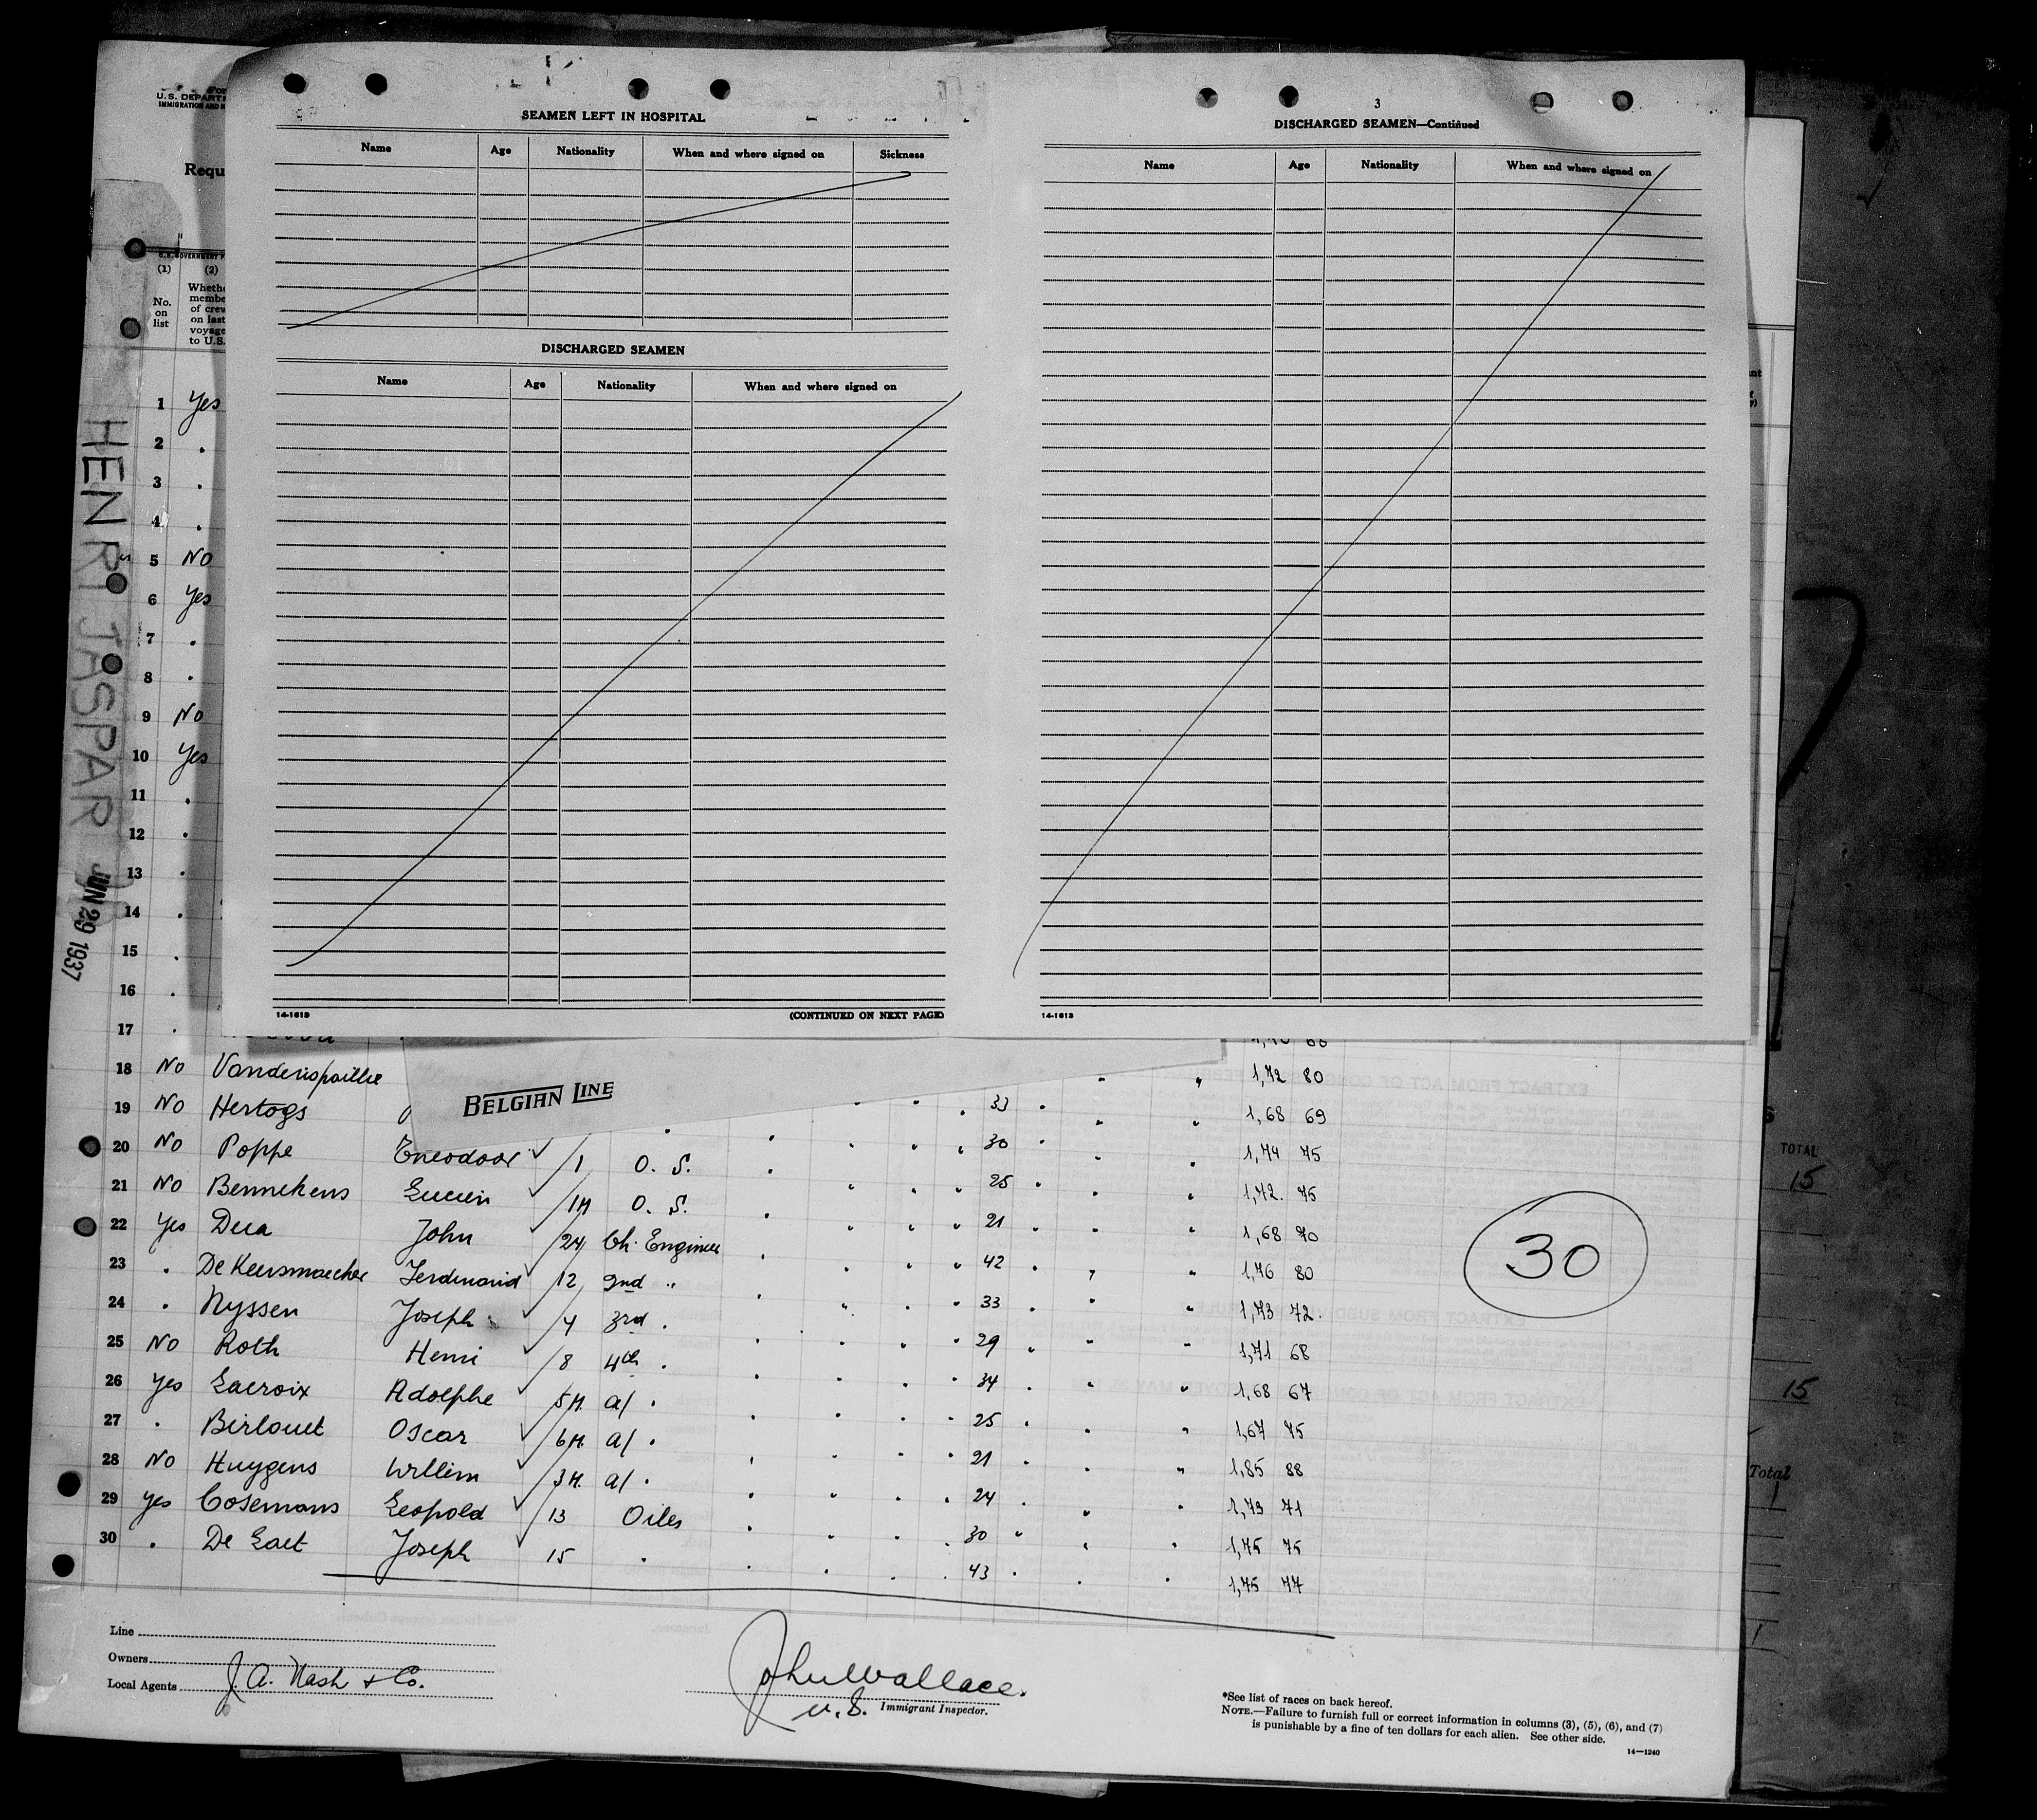 For
U.S. DEPARTM
IMMIGRATION AND N
Requ
U.S. GOVERNMENT P
(1) (2)
No. on list
Whethe
membe
of crew
on last
voyage
to U.S.
SEAMEN LEFT IN HOSPITAL
Name Age Nationality When and where signed on Sickness
DISCHARGED SEAMEN
Name Age Nationality When and where signed on
14-1613 (CONTINUED ON NEXT PAGE)
3
DISCHARGED SEAMEN—Continued
Name Age Nationality When and where signed on
14-1613
HENRI JASPAR
JUN 29 1937
1 Yes
2 .
3 .
4 .
5 No
6 Yes
7 .
8 .
9 No
10 Yes
11 .
12 .
13 .
14 .
15 .
16 .
17 .
BELGIAN LINE
18 No Vanderispaillie 1,72 80
19 No Hertogs 33 1,68 69
20 No Poppe Theodoor 1 O. S. 30 1,74 75
21 No Bennekens Lucien 1M O. S. 25 1,72 75
22 Yes Deca John 24 Ch. Engineer 21 1,68 70
23 . De Keersmaecker Ferdinand 12 2nd " 42 1,76 80
24 . Nyssen Joseph 4 3rd . 33 1,73 72
25 No Roth Henri 8 4th . 29 1,71 68
26 Yes Lacroix Adolphe 5M. a/ . 34 1,68 67
27 . Birlouet Oscar 6M. a/ . 25 1,67 75
28 No Huygens Willem 3M. a/ . 21 1,85 88
29 Yes Cosemans Leopold 13 Oiler 24 1,73 71
30 . De Laet Joseph 15 . 30 1,75 75
43 1,75 77
30
TOTAL
15
15
Total
1
Line
Owners
Local Agents J. A. Nash & Co.
John Wallace.
U.S. Immigrant Inspector.
*See list of races on back hereof.
NOTE.—Failure to furnish full or correct information in columns (3), (5), (6), and (7)
is punishable by a fine of ten dollars for each alien. See other side.
14—1240